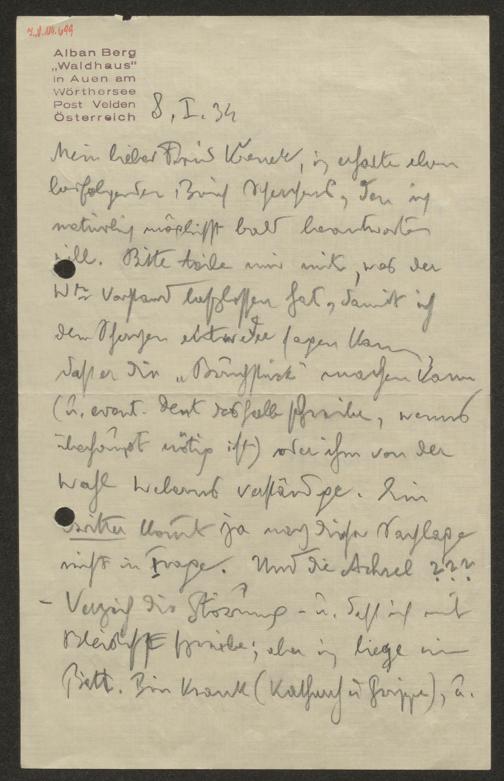 I.N. 
Alban Berg
„Waldhaus"
in Auen am
Wörthersee
Post Velden
Österreich
8. I. 34
Mein lieber Freund Krenek, ich erhalte eben
beifolgenden Brief Scherchens, den ich
natürlich möglichst bald beantworten
will. Bitte teile mir mit, was der
Wnr Vorstand beschlossen hat, damit ich
dem Scherchen entweder sagen kann,
daß er die „Bruchstücke" machen kann
(u. event. Dent deshalb schreibe, wenns
überhaupt nötig ist) oder ihn von der
Wahl Weberns verständige. Ein
Dritter kommt ja nach dieser Sachlage
nicht in Frage. Und die Achsel ???
– Verzeih die Störung – u. daß ich mit
Bleistift schreibe; aber ich liege im
Bett. Bin krank (Katharrh u Grippe), u.